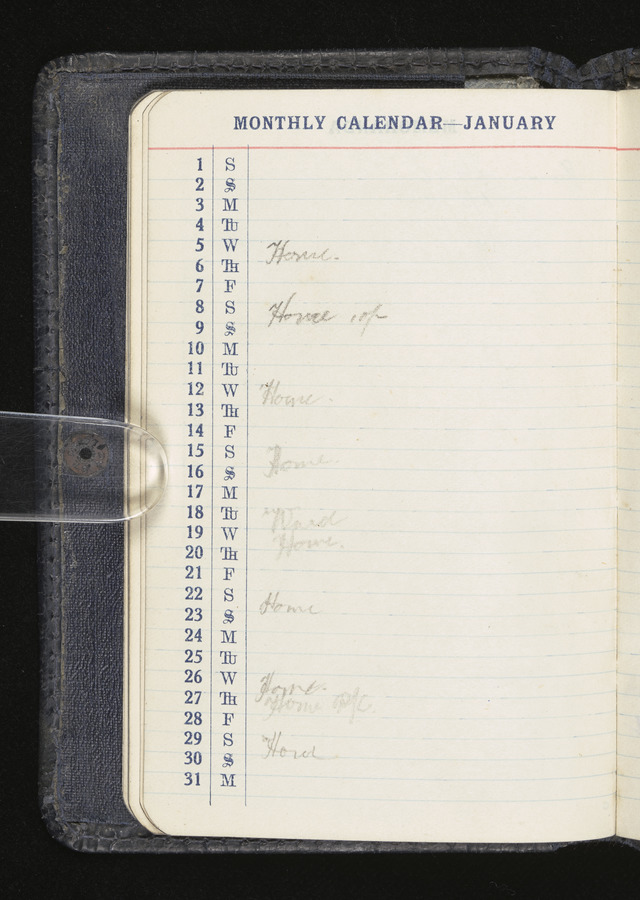 MONTHLY CALENDAR—JANUARY
1 S
2 S
3 M
4 Tu
5 W Home.
6 Th
7 F
8 S Home
9 S
10 M
11 Tu
12 W Home.
13 Th
14 F
15 S Home.
16 S
17 M
18 Tu
19 W Home.
20 Th
21 F
22 S Home
23 S
24 M
25 Tu
26 W Home.
27 Th Home P/C
28 F
29 S
30 S
31 M